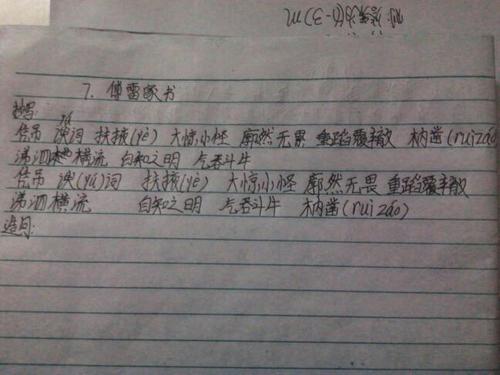 7. 傅雷家书
凭吊 谀词 扶掖(yè) 大惊小怪 廓然无累 重蹈覆辙 枘凿(ruì záo)
涕泗横流 自知之明 气吞斗牛
凭吊 谀(yú)词 扶掖(yè) 大惊小怪 廓然无畏 重蹈覆辙
涕泗横流 自知之明 气吞斗牛 枘凿(ruì záo)
造句: